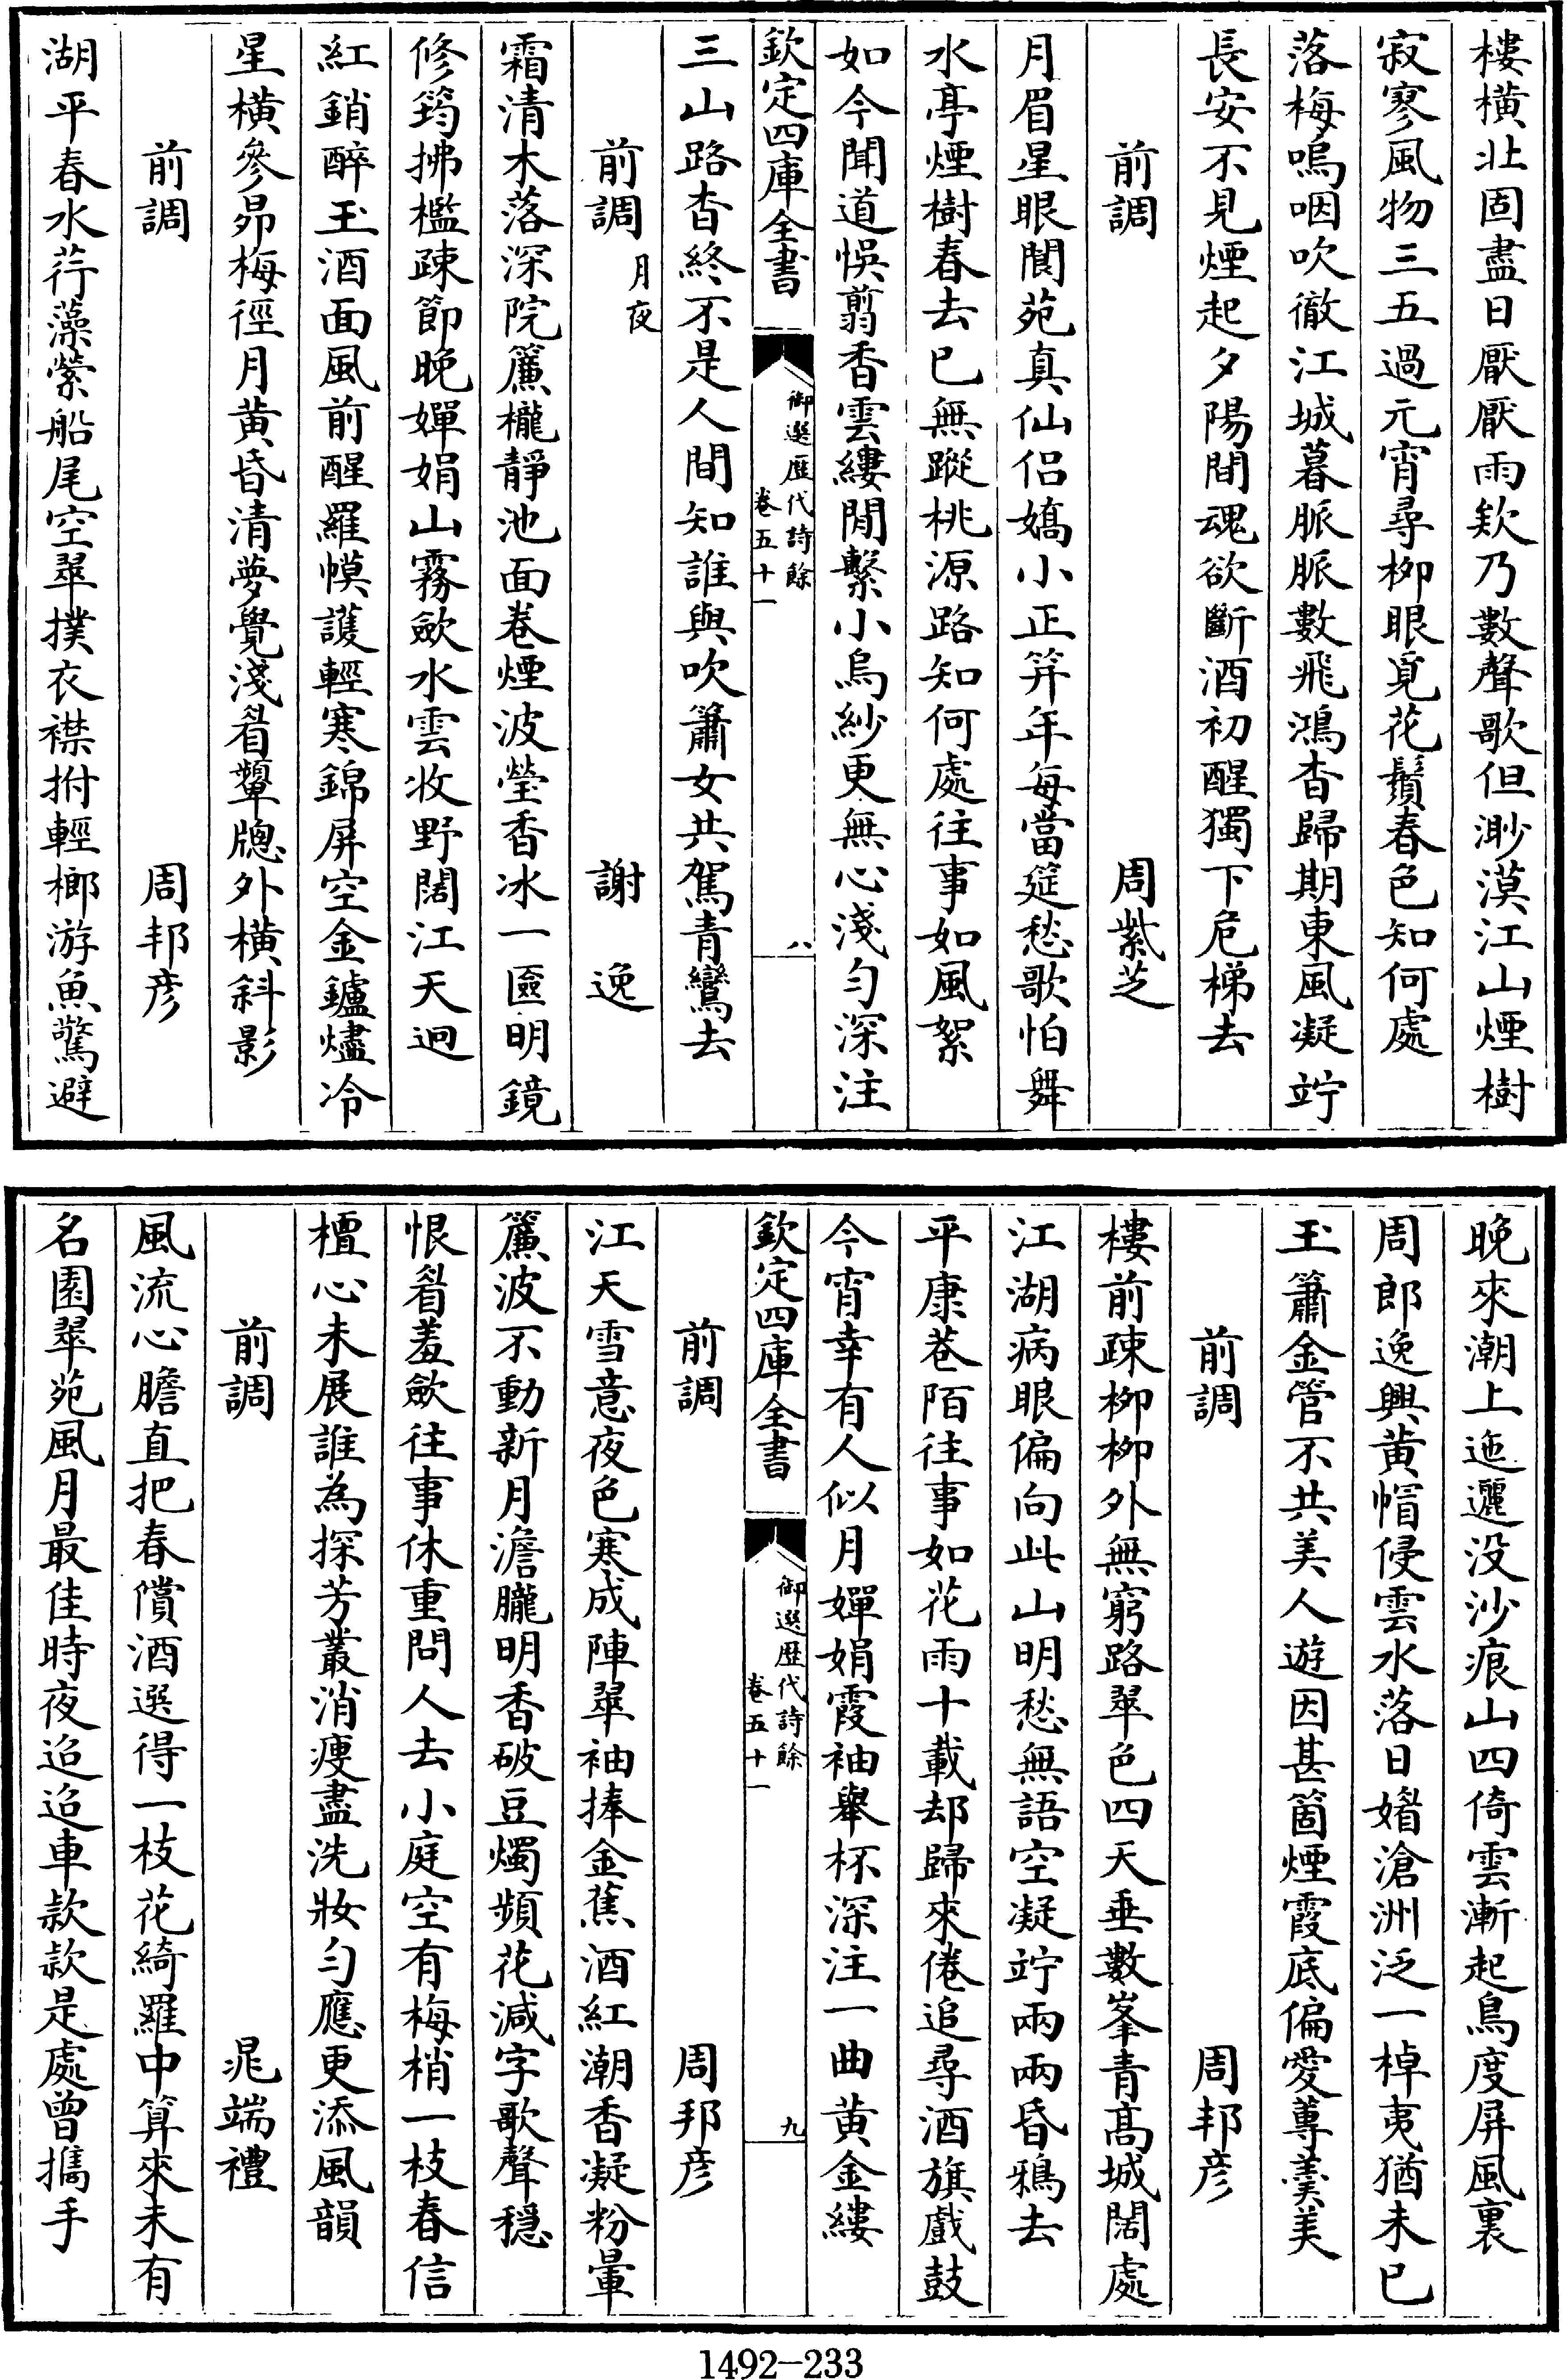 樓橫北固盡日厭厭雨欸乃數聲歌但渺漠江山煙樹
寂寥風物三五過元宵尋栁眼覓花鬚春色知何處
落梅嗚咽吹徹江城暮脈脈數飛鴻杳歸期東風凝竚
長安不見煙起夕陽間魂欲斷酒初醒獨下危梯去
前調 周紫芝
月眉星眼閬苑真仙侣嬌小正笄年每當筵愁歌怕舞
水亭煙樹春去已無蹤桃源路知何處往事如風絮
如今聞道悞翦香雲縷閒繫小烏紗更無心淺勻深注
欽定四庫全書 御選歷代詩餘 卷五十一 八
三山路杳終不是人間知誰與吹簫女共駕青鸞去
前調 月夜 謝逸
霜清木落深院簾櫳靜池面卷煙波瑩香冰一匳明鏡
修筠拂檻疎節晚嬋娟山霧斂水雲收野闊江天迥
紅銷醉玉酒面風前醒羅幙護輕寒錦屏空金鑪燼冷
星橫參昴梅徑月黄昏清夢覺淺眉顰牕外橫斜影
前調 周邦彦
湖平春水荇藻縈船尾空翠撲衣襟拊輕榔游魚驚避
晚來潮上迤邐没沙痕山四倚雲漸起鳥度屏風裏
周郎逸興黄帽侵雲水落日媚滄洲泛一棹夷猶未已
玉簫金管不共美人遊因甚箇煙霞底偏愛蓴羹美
前調 周邦彦
樓前疎栁栁外無窮路翠色四天垂數峯青髙城闊處
江湖病眼偏向此山明愁無語空凝竚兩兩昏鴉去
平康巷陌往事如花雨十載却歸來倦追尋酒旗戲鼓
今宵幸有人似月嬋娟霞袖舉杯深注一曲黄金縷
欽定四庫全書 御選歷代詩餘 卷五十一 九
前調 周邦彦
江天雪意夜色寒成陣翠袖捧金蕉酒紅潮香凝粉暈
簾波不動新月澹朧明香破豆燭頻花減字歌聲穏
恨眉羞斂往事休重問人去小庭空有梅梢一枝春信
檀心未展誰為探芳叢消瘦盡洗妝勻應更添風韻
前調 晁端禮
風流心膽直把春償酒選得一枝花綺羅中算來未有
名園翠苑風月最佳時夜迢迢車款款是處曾攜手
1492-233